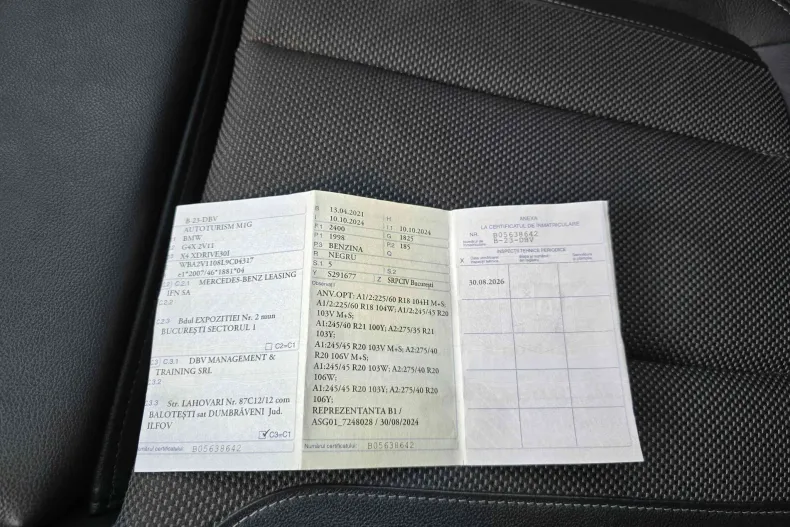 B-23-DBV
AUTOTURISM M1G
BMW
G4X 2V12
X4 XDRIVE30I
WBA2V1108L9C04517
e1*2007/46*1881*04
C.2.1 MERCEDES-BENZ LEASING
IFN SA
C.2.2
C.2.3 Bdul EXPOZITIEI Nr. 2 mun
BUCUREȘTI SECTORUL 1
C2=C1
C.3.1 DBV MANAGEMENT &
TRAINING SRL
C.3.2
C.3.3 Str. LAHOVARI Nr. 87C12/12 com
BALOTEȘTI sat DUMBRĂVENI Jud.
ILFOV
C3=C1
Numărul certificatului: B05638642
B 13.04.2021 H
I 10.10.2024 I.1 10.10.2024
F.1 2400 G 1825
P.1 1998 P.2 185
P.3 BENZINA Q
R NEGRU
S.1 5 S.2
Y S291677 Z SRPCIV București
Observații
ANV.OPT: A1/2:225/60 R18 104H M+S;
A1/2:225/60 R18 104W; A1/2:245/45 R20
103V M+S;
A1:245/40 R21 100Y; A2:275/35 R21
103Y;
A1:245/45 R20 103V M+S; A2:275/40
R20 106V M+S;
A1:245/45 R20 103W; A2:275/40 R20
106W;
A1:245/45 R20 103Y; A2:275/40 R20
106Y;
REPREZENTANTA B1 /
ASG01_7248028 / 30/08/2024
Numărul certificatului: B05638642
ANEXA
LA CERTIFICATUL DE ÎNMATRICULARE
NR. B05638642
B-23-DBV
INSPECȚII TEHNICE PERIODICE
X
30.08.2026